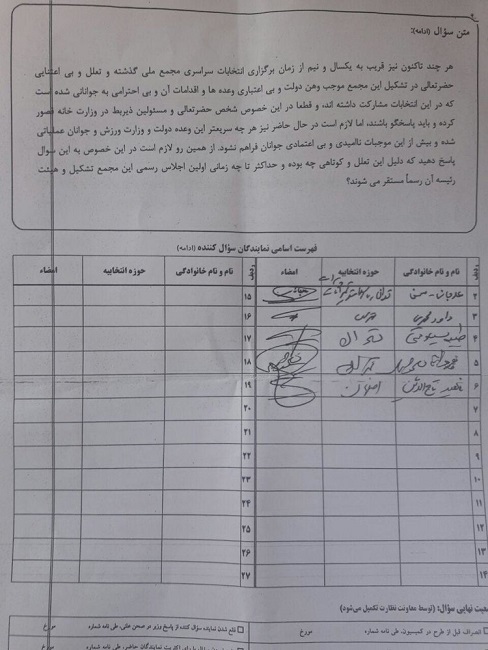 متن سؤال (ادامه):
هر چند تاکنون نیز قریب به یکسال و نیم از زمان برگزاری انتخابات سراسری مجمع ملی گذشته و تعلل و بی اعتنایی
حضرتعالی در تشکیل این مجمع موجب وهن دولت و بی اعتباری وعده ها و اقدامات آن و بی احترامی به جوانانی شده است
که در این انتخابات مشارکت داشته اند، و قطعا در این خصوص شخص حضرتعالی و مسئولین ذیربط در وزارت خانه قصور
کرده و باید پاسخگو باشند، اما لازم است در حال حاضر نیز هر چه سریعتر این وعده دولت و وزارت ورزش و جوانان عملیاتی
شده و بیش از این موجبات ناامیدی و بی اعتمادی جوانان فراهم نشود. از همین رو لازم است در این خصوص به این سوال
پاسخ دهید که دلیل این تعلل و کوتاهی چه بوده و حداکثر تا چه زمانی اولین اجلاس رسمی این مجمع تشکیل و هیئت
رئیسه آن رسماً مستقر می شوند؟
فهرست اسامی نمایندگان سؤال کننده (ادامه)
ردیف نام و نام خانوادگی حوزه انتخابیه امضاء ردیف نام و نام خانوادگی حوزه انتخابیه امضاء
۲ ۱۵
۳ داود محمدی ۱۶
۴ طیبه سیاوشی تهران ۱۷
۵ ۱۸
۶ ناهید تاج الدین اصفهان ۱۹
۷ ۲۰
۸ ۲۱
۹ ۲۲
۱۰ ۲۳
۱۱ ۲۴
۱۲ ۲۵
۱۳ ۲۶
۱۴ ۲۷
نهایی سؤال: (توسط معاونت نظارت تکمیل می‌شود)
انصراف قبل از طرح در کمیسیون، طی نامه شماره مورخ
قانع شدن نماینده سؤال کننده از پاسخ وزیر در صحن علنی، طی نامه شماره مورخ